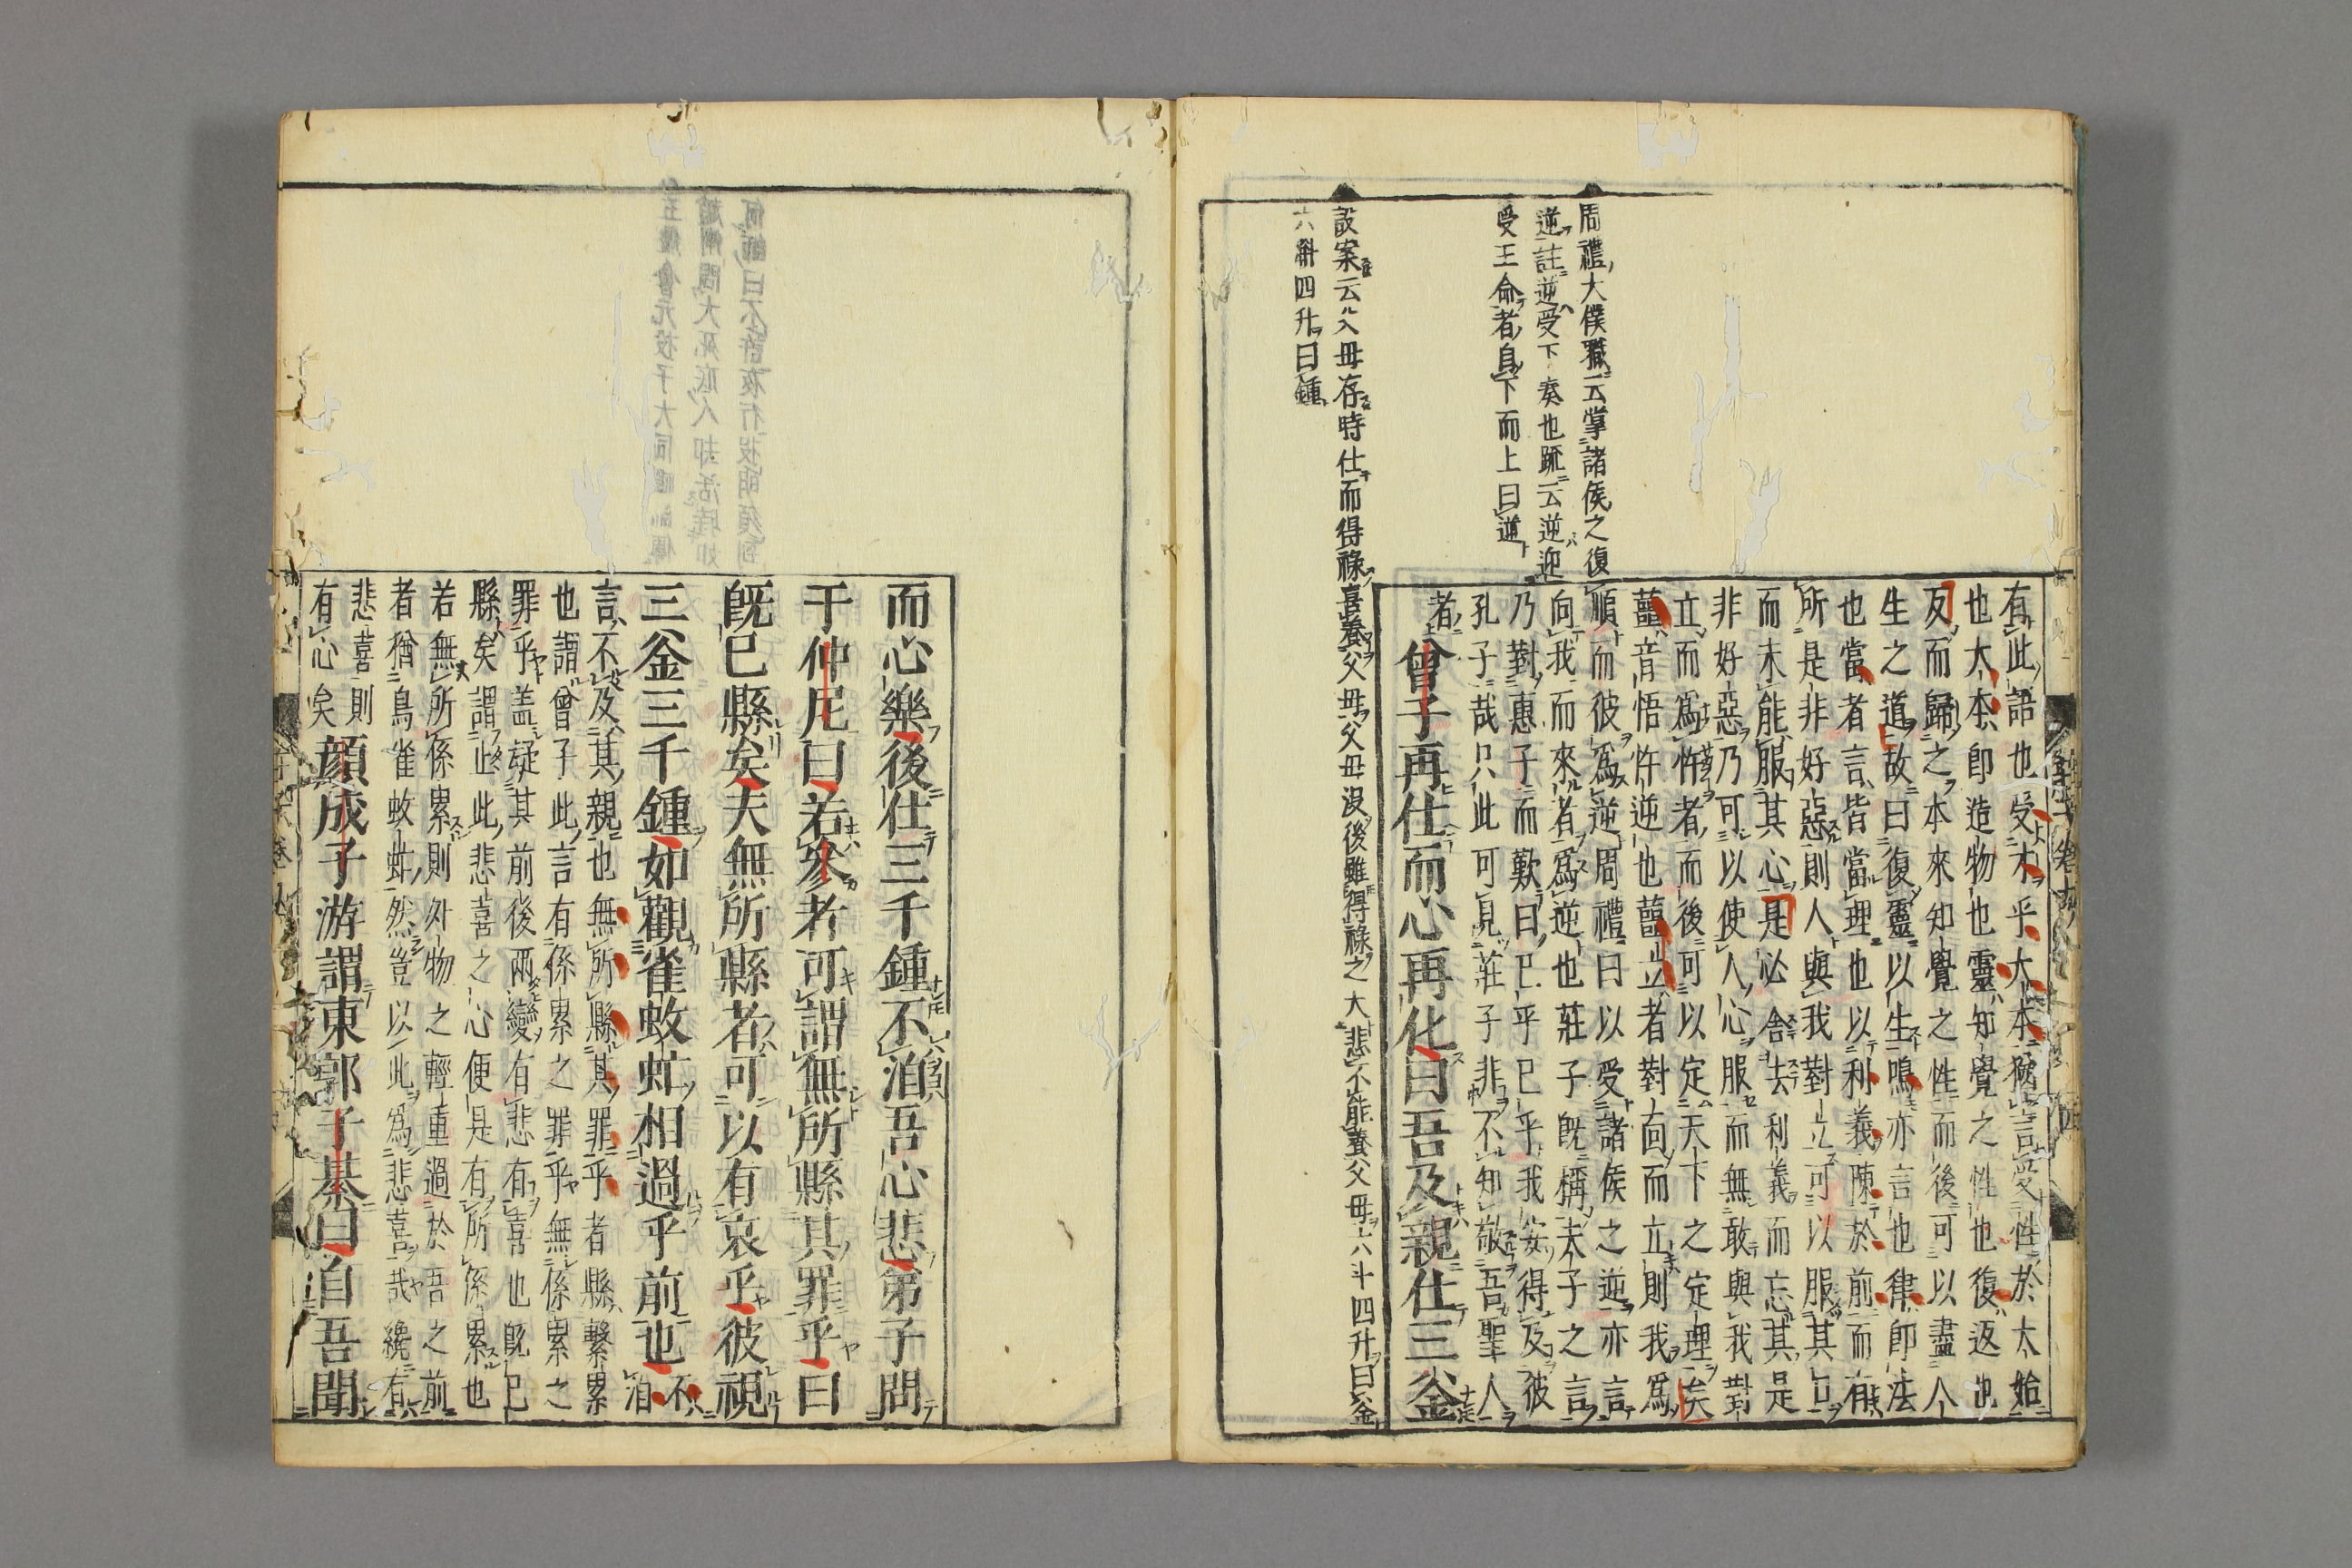 周禮大僕職云掌諸侯之復
逆註逆受下奏也疏云逆迎
受王命者自下而上曰逆
設案云父母存時仕而得祿喜養父母父母沒後雖得祿之大悲不能養父母六斗四升曰釜
六斛四升曰鍾
有此語也受才乎大本猶言受性於太始
也大本卽造物也靈知覺之性也復返也
反而歸之本來知覺之性而後可以盡人
生之道故曰復靈以生鳴亦言也律卽法
也當者言皆當理也以利義陳於前而有
所是非好惡則人與我對立可以服其口
而未能服其心是必舍去利義而忘其是
非好惡乃可以使人心服而無敢與我對
立而爲忤者而後可以定天下之定理矣
蘁音悟忤逆也蘁立者對面而立則我爲
順而彼爲逆周禮曰以受諸侯之逆亦言
向我而來者爲逆也莊子旣稱夫子之言
乃對惠子而歎曰已乎已乎我安得及彼
孔子哉只此可見莊子非不知敬吾聖人
者
曾子再仕而心再化曰吾及親仕三釜
而心樂後仕三千鍾不洎吾心悲弟子問
于仲尼曰若參者可謂無所縣其罪乎曰
旣已縣矣夫無所縣者可以有哀乎彼視
三釜三千鍾如觀雀蚊虻相過乎前也不
洎
言不及其親也無所縣其罪乎者縣繫累
也謂曾子此言有係累之罪乎無係累之
罪乎蓋疑其前後兩變有悲有喜也旣已
縣矣謂止此悲喜之心便是有所係累也
若無所係累則外物之輕重過於吾之前
者猶鳥雀蚊虻然豈以此爲悲喜哉纔有
悲喜則
有心矣
顏成子游謂東郭子綦曰自吾聞